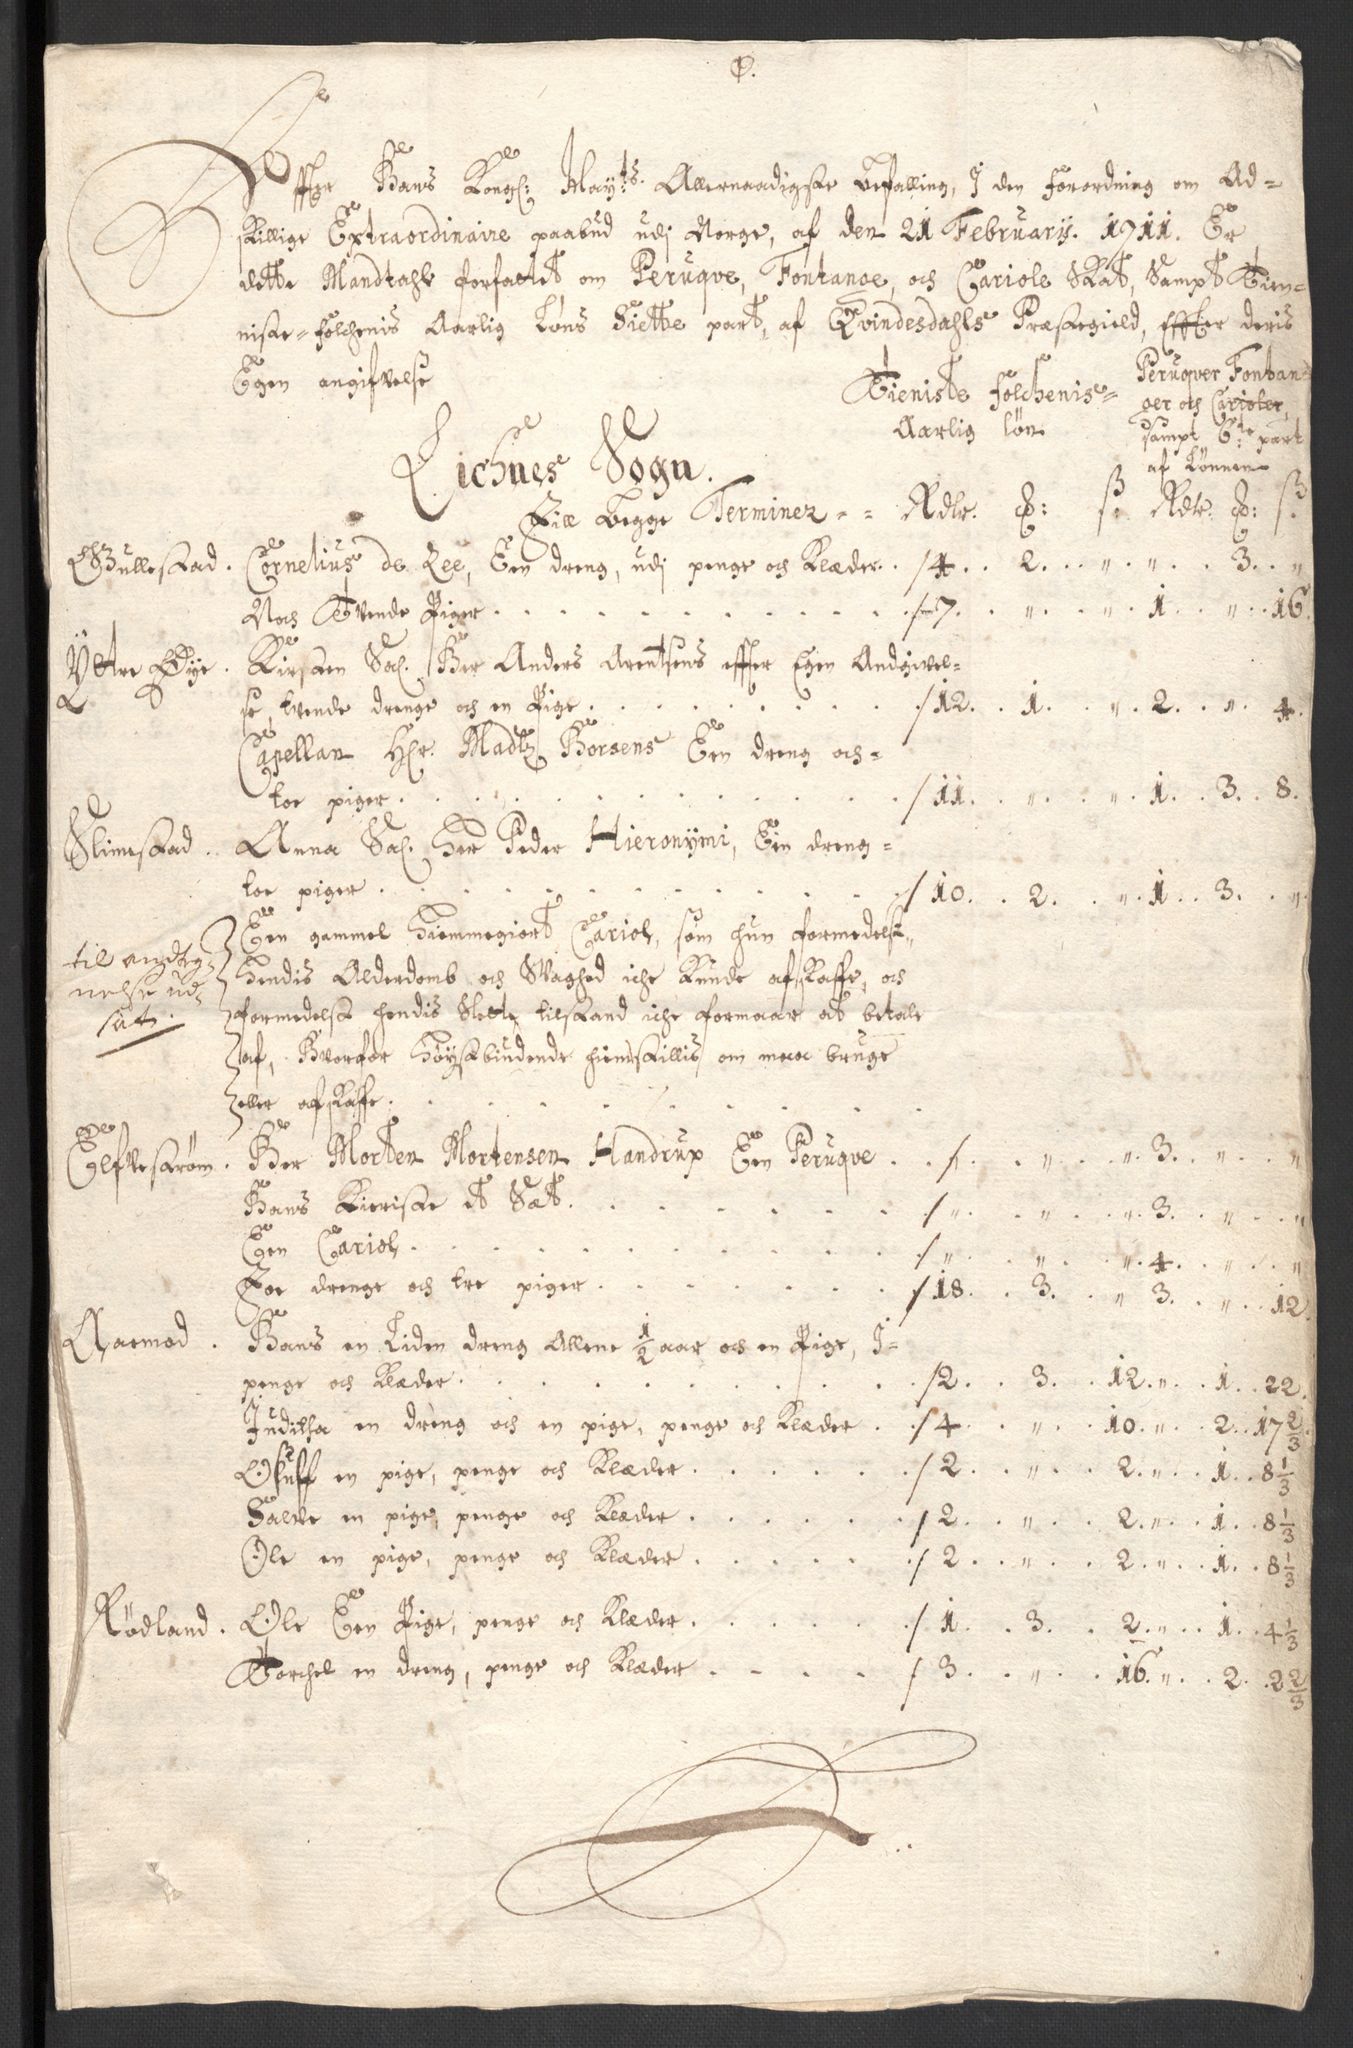 Effter Hans Kongl: Mayts. Allernaadigste befalling, I den forordning om Ad=
skillige Extraordinaire paabud udj Norge, af den 21 February. 1711. Er
dette Mandtahl forfattet om Peruqve, Fontange, och Cariole Skat, Sampt Tien=
niste=folchenis Aarlig Løns Siette part, af Qvindesdahls Præstegield, Effter deris
Egen angifvelse
Tieniste folchenis=
Aarlig løn
Peruqver Fontan=
ger och Carioler,
sampt 6te part
af Lønnen
Lichnes Sogn.
Till begge Terminer - - Rdlr. ort: s: Rdlr. ort: s.
Gullestad. Cornelius de Lee, Een dreng, udj penge och Klæder. /4. 2. " " 3. "
Noch Tvende Piger /7. " " 1. " 16.
Yttre Øye. Kirsten Sal. Her Anders Arentsens effter Egen Andgivel=
se, tvende drenge och en Pige /12. 1. " 2. " 4.
Capellan Her. Madtz Borsens Een dreng och=
toe piger /11. " " 1. 3. 8.
Slimestad. Anna Sal. Her Peder Hieronymi, Ein dreng=
toe piger /10. 2. " 1. 3. "
Een gammel hiemmegiort Cariol, som hun formedelst
til andteg=
nelse ud=
sat.
hendis Alderdomb och Svaghed iche Kunde afskaffe, och
formedelst hendis Slette tilstand iche formaar at betale
af, Hvorfor høystbiudende hiemstillis om maa bruge
eller afskaffe.
Elfvestrøm. Her Morten Mortensen Handrup Een Peruqve /. " " 3. " "
Hans Kieriste et Sæt. /" " " 3. " "
Een Cariol /" " " 4. " "
Toe drenge och tre piger /18. 3. " 3. " 12.
Aamod. Hans en Liden dreng Allene 1/2 aar och en Pige, I=
penge och Klæder. /2. 3. 12. " 1. 22.
Juditha en dreng och en pige, penge och Klæder /4 " 10. " 2. 17 2/3.
Oluff en pige, penge och Klæder /2. " 2. " 1. 8 1/3
Salve en pige, penge och Klæder /2. " 2. " 1. 8 1/3
Ole en pige, penge och Klæder /2. " 2. " 1. 8 1/3
Rødland. Ole Een Pige, penge och Klæder /1. 3. 2. " 1. 4 1/3
Torchel en dreng, penge och Klæder /3. " 16. " 2. 2 2/3